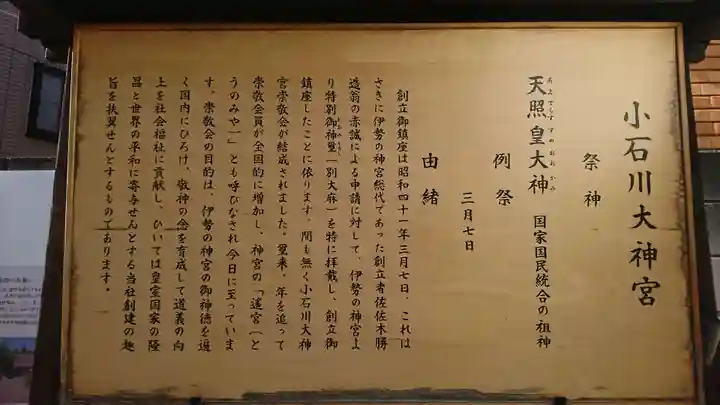 小石川大神宮
祭神
天照皇大神 国家国民統合の祖神
あまてらすすめおおかみ
例祭
三月七日
由緒
創立御鎮座は昭和四十一年三月七日、これは
さきに伊勢の神宮総代であった創立者佐佐木勝
造翁の赤誠による申請に対して、伊勢の神宮よ
り特別御神璽「別大麻」を特に拝戴し、創立御
鎮座したことに依ります。間も無く小石川大神
宮崇敬会が結成されました。爾来、年を追って
崇敬会員が全国的に増加し、神宮の「遙宮(と
うのみや一」とも呼びなされ今日に至っていま
す。崇敬会の目的は、伊勢の神宮の御神徳を遍
く国内にひろげ、敬神の念を育成して道義の向
上を社会福祉に貢献し、ひいては皇室国家の隆
昌と世界の平和に寄与せんとする当社創建の趣
旨を扶翼せんとするものであります。